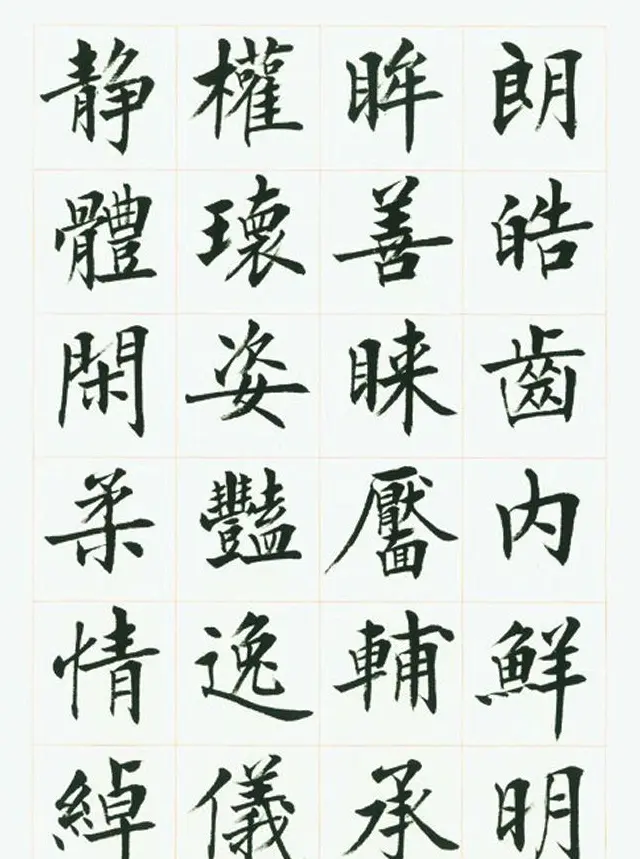 朗皓齒内鮮明
眸善睞靨輔承
權瓌姿豔逸儀
静體閑柔情綽